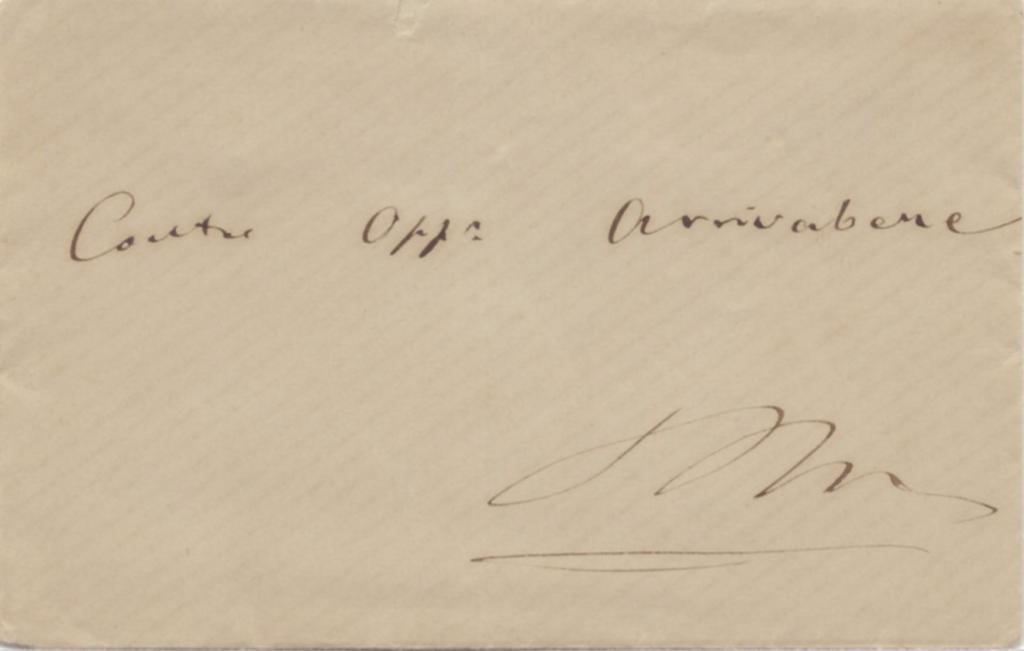 Contre Oppe Arrivabene